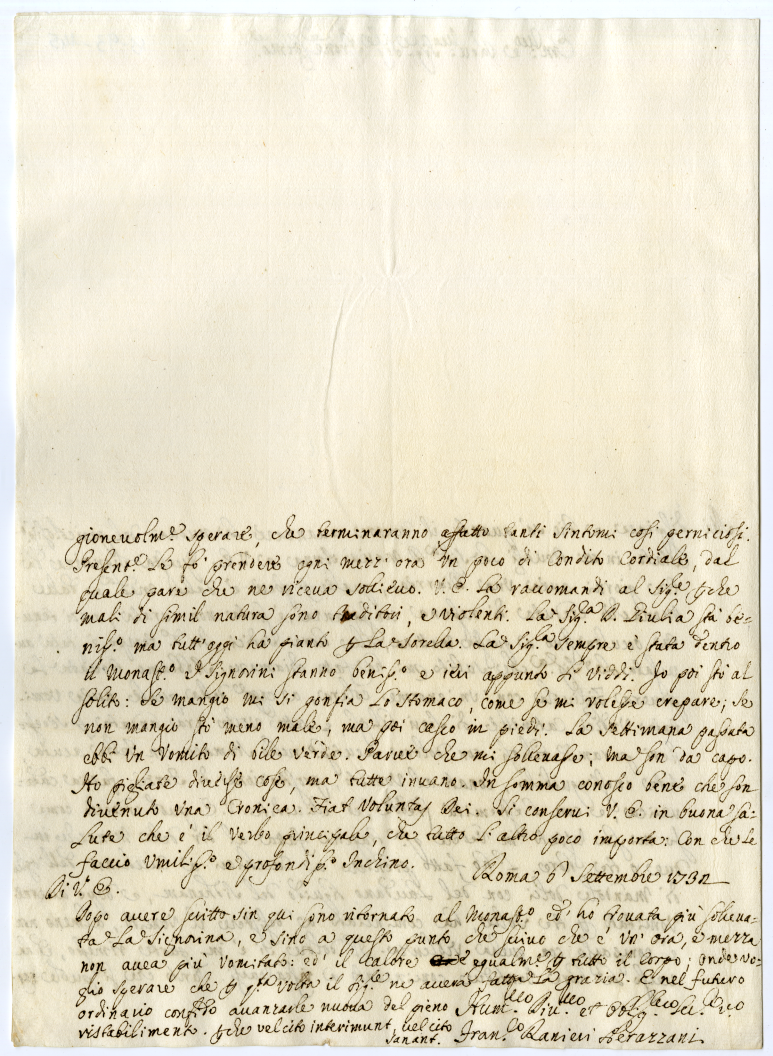 gionevolm.e sperare, che terminaranno affatto tanti sintomi così perniciosi.
Present.e Le fò prendere ogni mezz'ora un poco di Condito Cordiale, dal
quale pare che ne riceva sollievo. V. E. La raccomandi al Sig.re perche
mali di simil natura sono traditori, e violenti. La Sig.ra D. Giulia stà be-
niss.o ma tutt'oggi hà pianto per La Sorella. La Sig.ra Sempre è stata dentro
il Monast.o I Signorini stanno beniss.o e ieri appunto Li viddi. Io poi stò al
solito: Se mangio mi si gonfia Lo stomaco, come se mi volesse crepare; se
non mangio stò meno male, ma poi casco in piedi. La Settimana passata
ebbi un Vomito di bile verde. Parve che mi sollevasse; ma son da capo.
Hò pigliate diverse cose, ma tutte invano. In somma conosco bene che son
divenuto una Cronica. Fiat Voluntas Dei. Si conservi V. E. in buona Sa-
Lute che è il Verbo principale, che tutto L'altro poco importa: Con che Le
faccio Umiliss.o e profondiss.o Inchino. Roma 6 Settembre 1732
Di V. E.
Dopo avere scritto sin qui sono ritornato al Monast.o ed hò trovata più solleva-
ta La Signorina, e sino a questo punto che scrivo che è un'ora, e mezza
non avea più vomitato: ed il Calore è egualm.e per tutto il Corpo; onde vo-
glio sperare che per q.ta volta il Sig.re ne averà fatta La grazia. E nel futuro
ordinario confido avanzarle nuova del pieno Hum.mo Div.mo et Obblig.mo Se.re vero
ristabilimento. Perche vel cito interimunt, vel cito
sanant. Fran.co Ranieri Gerazzani